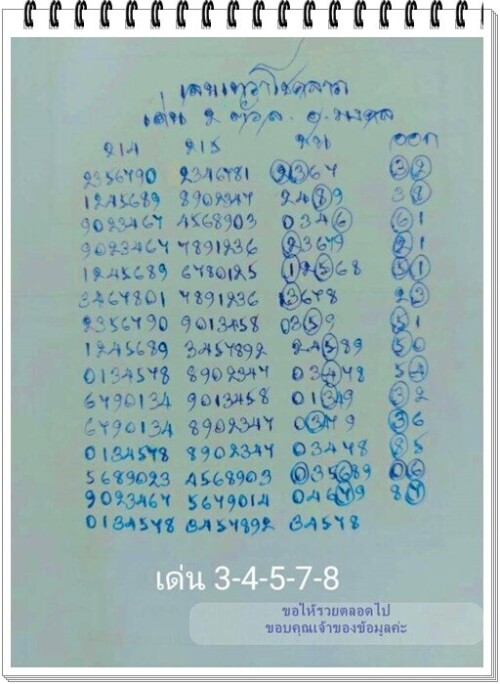 เลขเทวาโชคลาภ
เด่น 2 ตัวล. อ.มงคล
214 215 ชน ออก
2356790 2346781 2367 32
1245689 8902347 2489 38
9023467 4568903 0346 61
9023467 7891236 23679 21
1245689 6780125 12568 51
3467801 7891236 3678 23
2356790 9013458 0359 51
1245689 3457892 24589 50
0134578 8902347 03478 54
6790134 9013458 01349 32
6790134 8902347 0379 36
0134578 8902347 03478 85
5689023 4568903 035689 06
9023467 5679014 04679 87
0134578 3457892 34578
เด่น 3-4-5-7-8
ขอให้รวยตลอดไป
ขอบคุณเจ้าของข้อมูลค่ะ